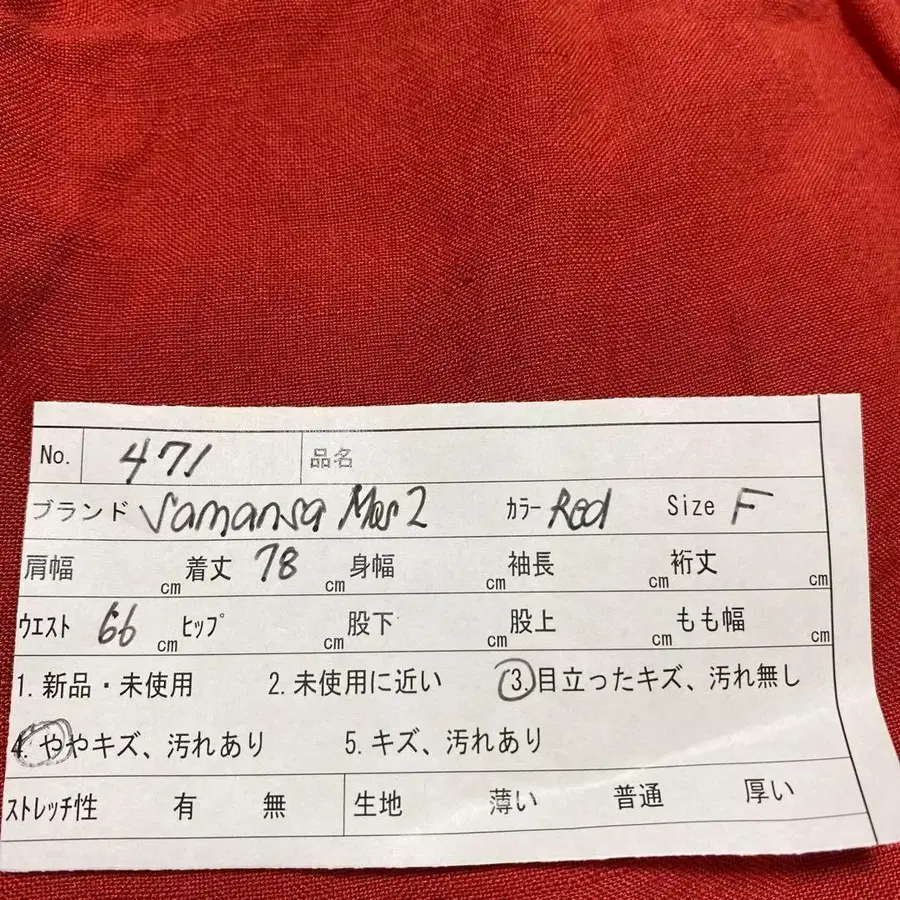 No. 471 品名
ブランド Samansa Mos2 カラー Red Size F
肩幅 cm 着丈 78 cm 身幅 cm 袖長 cm 裄丈 cm
ウエスト 66 cm ヒップ cm 股下 cm 股上 cm もも幅 cm
1. 新品・未使用 2. 未使用に近い 3. 目立ったキズ、汚れ無し
4. ややキズ、汚れあり 5. キズ、汚れあり
ストレッチ性 有 無 生地 薄い 普通 厚い